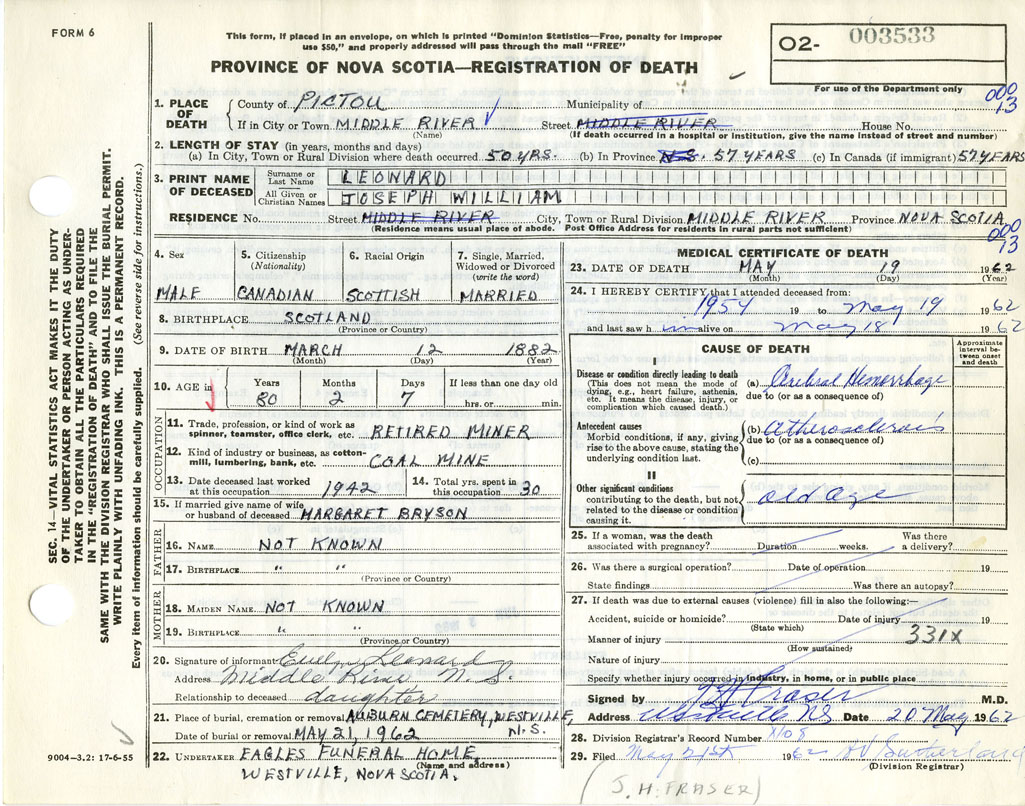 FORM 6
This form, if placed in an envelope, on which is printed "Dominion Statistics—Free, penalty for improper
use $50," and properly addressed will pass through the mail "FREE"
PROVINCE OF NOVA SCOTIA—REGISTRATION OF DEATH
O2- 003533
For use of the Department only
000
13
1. PLACE OF DEATH
County of PICTOU Municipality of
If in City or Town MIDDLE RIVER Street MIDDLE RIVER House No.
(Name) (If death occurred in a hospital or institution, give the name instead of street and number)
2. LENGTH OF STAY (in years, months and days)
(a) In City, Town or Rural Division where death occurred 50 YRS. (b) In Province N.S. 57 YEARS (c) In Canada (if immigrant) 57 YEARS
3. PRINT NAME OF DECEASED
Surname or Last Name LEONARD
All Given or Christian Names JOSEPH WILLIAM
RESIDENCE No. Street MIDDLE RIVER City, Town or Rural Division MIDDLE RIVER Province NOVA SCOTIA
(Residence means usual place of abode. Post Office Address for residents in rural parts not sufficient)
000
13
4. Sex 5. Citizenship (Nationality) 6. Racial Origin 7. Single, Married, Widowed or Divorced (write the word)
MALE CANADIAN SCOTTISH MARRIED
8. BIRTHPLACE SCOTLAND
(Province or Country)
9. DATE OF BIRTH MARCH 12 1882
(Month) (Day) (Year)
10. AGE in Years Months Days If less than one day old
80 2 7 hrs. or min.
OCCUPATION
11. Trade, profession, or kind of work as
spinner, teamster, office clerk, etc. RETIRED MINER
12. Kind of industry or business, as cotton-
mill, lumbering, bank, etc. COAL MINE
13. Date deceased last worked at this occupation 1942 14. Total yrs. spent in this occupation 30
15. If married give name of wife
or husband of deceased MARGARET BRYSON
FATHER
16. NAME NOT KNOWN
17. BIRTHPLACE " "
(Province or Country)
MOTHER
18. MAIDEN NAME NOT KNOWN
19. BIRTHPLACE " "
(Province or Country)
20. Signature of informant Evelyn Leonard
Address Middle River N.S.
Relationship to deceased daughter
21. Place of burial, cremation or removal AUBURN CEMETERY, WESTVILLE, N.S.
Date of burial or removal MAY 21, 1962
22. UNDERTAKER EAGLES FUNERAL HOME,
(Name and address)
WESTVILLE, NOVA SCOTIA.
MEDICAL CERTIFICATE OF DEATH
23. DATE OF DEATH MAY 19 1962
(Month) (Day) (Year)
24. I HEREBY CERTIFY, that I attended deceased from:
1954 19 to May 19 1962
and last saw him alive on May 18 1962
CAUSE OF DEATH
Approximate interval between onset and death
I
Disease or condition directly leading to death
(This does not mean the mode of
dying, e.g., heart failure, asthenia,
etc. It means the disease, injury, or
complication which caused death.)
(a) Cerebral Hemorrhage
due to (or as a consequence of)
Antecedent causes
Morbid conditions, if any, giving
rise to the above cause, stating the
underlying condition last.
(b) Atherosclerosis
due to (or as a consequence of)
(c)
II
Other significant conditions
contributing to the death, but not
related to the disease or condition
causing it.
old age
25. If a woman, was the death
associated with pregnancy? Duration weeks. Was there a delivery?
26. Was there a surgical operation? Date of operation 19
State findings Was there an autopsy?
27. If death was due to external causes (violence) fill in also the following:—
Accident, suicide or homicide? Date of injury 19
(State which)
Manner of injury 331X
(How sustained)
Nature of injury
Specify whether injury occurred in industry, in home, or in public place
Signed by J H Fraser M.D.
Address Westville N.S. Date 20 May 1962
28. Division Registrar's Record Number
29. Filed May 21st 1962 Sutherland
(Division Registrar)
(J. H. FRASER)
SEC. 14—VITAL STATISTICS ACT MAKES IT THE DUTY
OF THE UNDERTAKER OR PERSON ACTING AS UNDER-
TAKER TO OBTAIN ALL THE PARTICULARS REQUIRED
IN THE "REGISTRATION OF DEATH" AND TO FILE THE
SAME WITH THE DIVISION REGISTRAR WHO SHALL ISSUE THE BURIAL PERMIT.
WRITE PLAINLY WITH UNFADING INK. THIS IS A PERMANENT RECORD.
Every item of information should be carefully supplied. (See reverse side for instructions.)
9004-3.2: 17-6-55